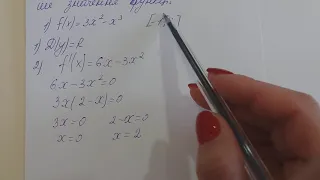 ше значения функции
1) f(x)=3x²-x³
1) D(y)=R
2) f'(x)=6x-3x²
6x-3x²=0
3x(2-x)=0
3x=0 2-x=0
x=0 x=2